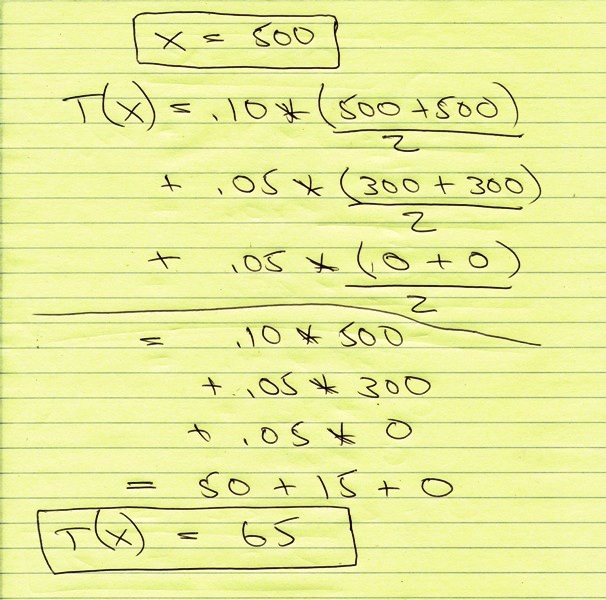 x = 500
T(x) = .10 * (500 + 500)
2
+ .05 * (300 + 300)
2
+ .05 * (.0 + 0)
2
= .10 * 500
+ .05 * 300
+ .05 * 0
= 50 + 15 + 0
T(x) = 65